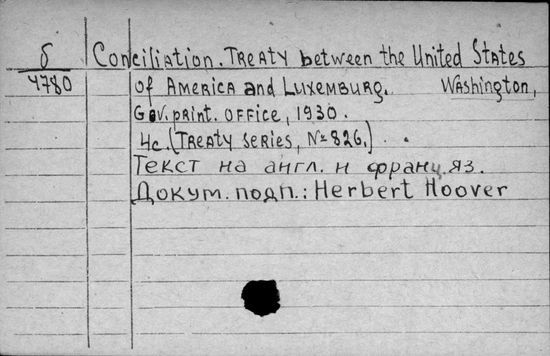 б Conciliation. Treaty between the United States
4780 of America and Luxemburg. Washington,
Gov. print. office, 1930.
4c. (Treaty series, № 826.)
Текст на англ. и франц. яз.
Докум. подп.: Herbert Hoover